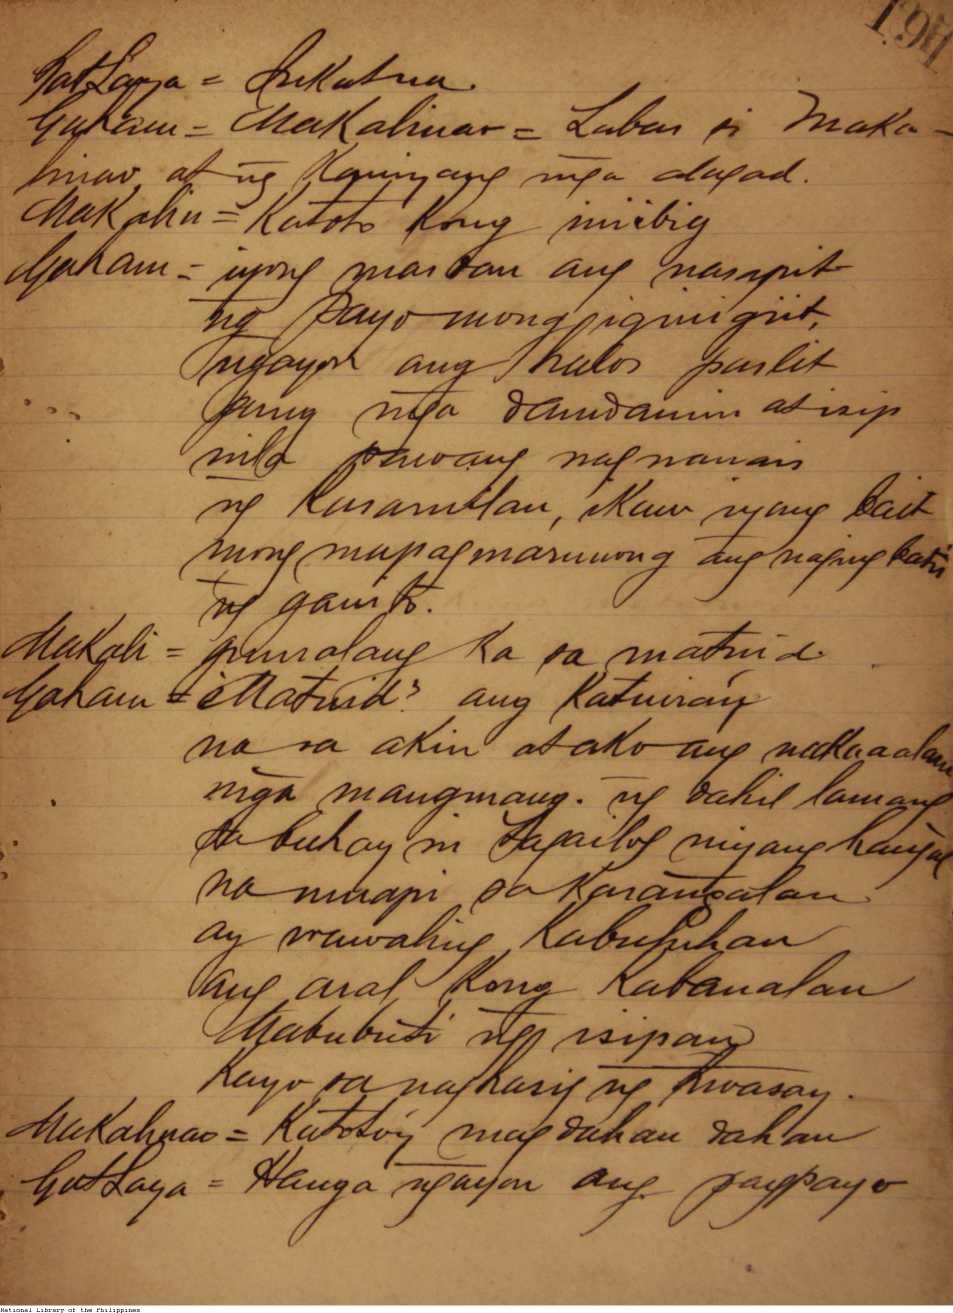 194
GatLaya = Inkatua.
Gaham = MaKalinao = Labas si Maka-
linao at ng Kaniyang mga alagad.
MaKalin = Katoto Kong iniibig
Gaham = iyong masdan ang nasapit
ng payo mong iginigiit,
ngayon ang halos paslit
pang mga damdamin at isip
nila pawang nagnanais
ng Kasamalan, iKaw iyang bait
mong mapagmarunong ang naging
ng ganito.
MaKali = gumalang Ka sa matuid.
Gaham = ¿Matuid? ang Katuiran
na sa akin at ako ang nakaaalam
mga mangmang. ng dahil lamang
sa buhay ni Lagailog niyang hangal
na muapi sa Karangalan
ay wawaling Kabuluhan
ang aral Kong Kabanalan
Mabubuti ng isipan
Kayo sa naghasig ng
MaKalinao = Katotoy mag dahan dahan
GatLaya = Hanga ngayon ang pagpayo
National Library of the Philippines